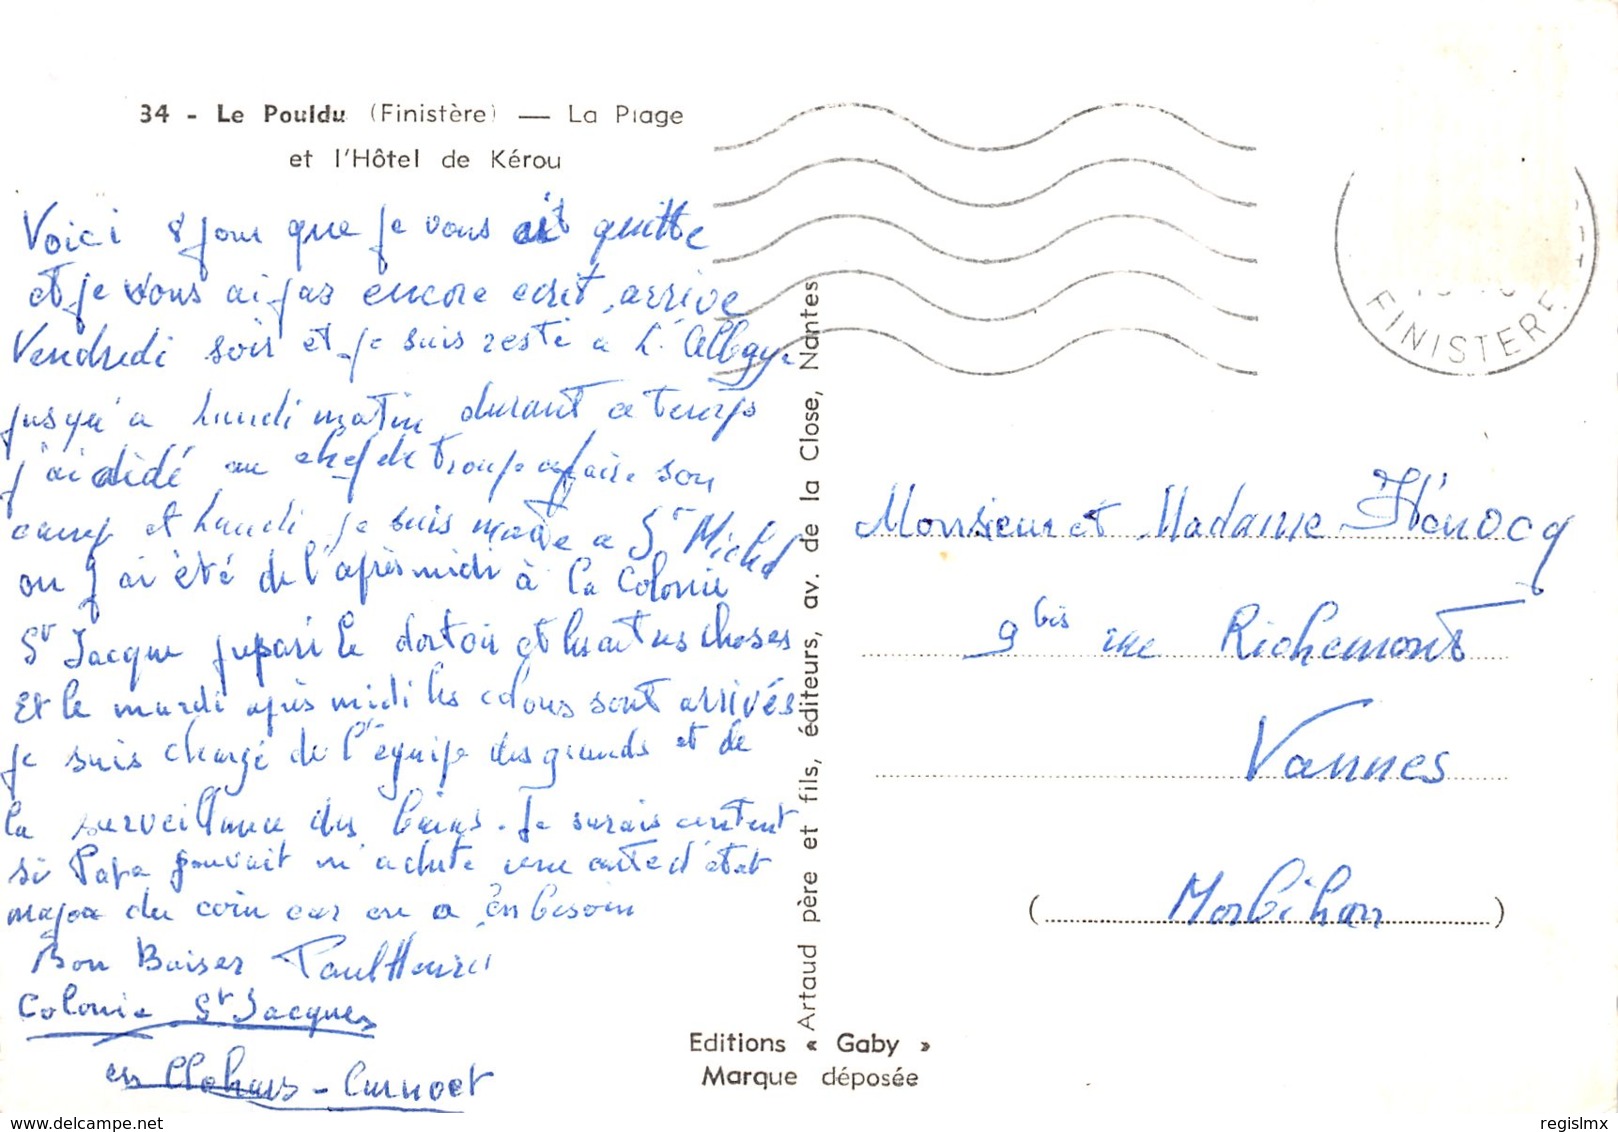 34 - Le Pouldu (Finistère) — La Plage
et l'Hôtel de Kérou
Voici 8 jour que je vous ait quitte
et je vous ai pas encore ecrit, arrive
Vendredi soir et je suis resté a L'Abbaye
jusqu'a Lundi matin durant ce temps
j'ai aidé au chef de troupe a faire son
camp et Lundi je suis monté a St Michel
ou j'ai été de l'après midi à la colonie
St Jacque préparé le dortoir et les autres choses
Et le mardi après midi les colons sont arrivés
je suis chargé de l'équipe des grands et de
la surveillance des bains. Je serais content
si Papa pouvait m'acheté une carte d'état
major du coin car on a en besoin
Bon Baiser Paul Henri
Colonie St Jacques
en Clohars-Carnoet
Artaud père et fils, éditeurs, av. de la Close, Nantes
Editions « Gaby »
Marque déposée
FINISTERE
Monsieur et Madame Hénocq
9 bis rue Richemont
Vannes
(Morbihan)
regislmx